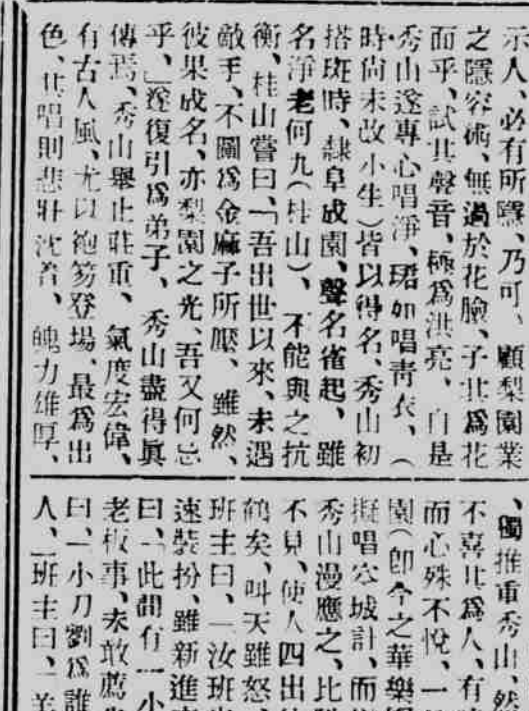 示人、必有所隱、乃可、顧梨園業
之隱容術、無過於花臉、子其爲花
而乎、試其聲音、極爲洪亮、自是
秀山遂專心唱淨、珺如唱靑衣、(
時尙未改小生)皆以得名、秀山初
搭班時、隸阜成園、聲名雀起、雖
名淨老何九(桂山)、不能與之抗
衡、桂山嘗曰、「吾出世以來、未遇
敵手、不圖爲金麻子所壓、雖然、
彼果成名、亦梨園之光、吾又何忌
乎、」遂復引爲弟子、秀山盡得眞
傳焉、秀山舉止莊重、氣度宏偉、
有古人風、尤以袍笏登場、最爲出
色、其唱則悲壯沈着、魄力雄厚、
、獨推重秀山、然
不喜其爲人、有
而心殊不悅、一
園(卽今之華樂
擬唱空城計、而
秀山漫應之、比
不見、使人四出
鶴矣、叫天雖怒、
班主曰、「汝班
速裝扮、雖新進
曰、「此間有一小
老板事、未敢薦
曰、「小刀劉爲誰
人、」班主曰、「羊